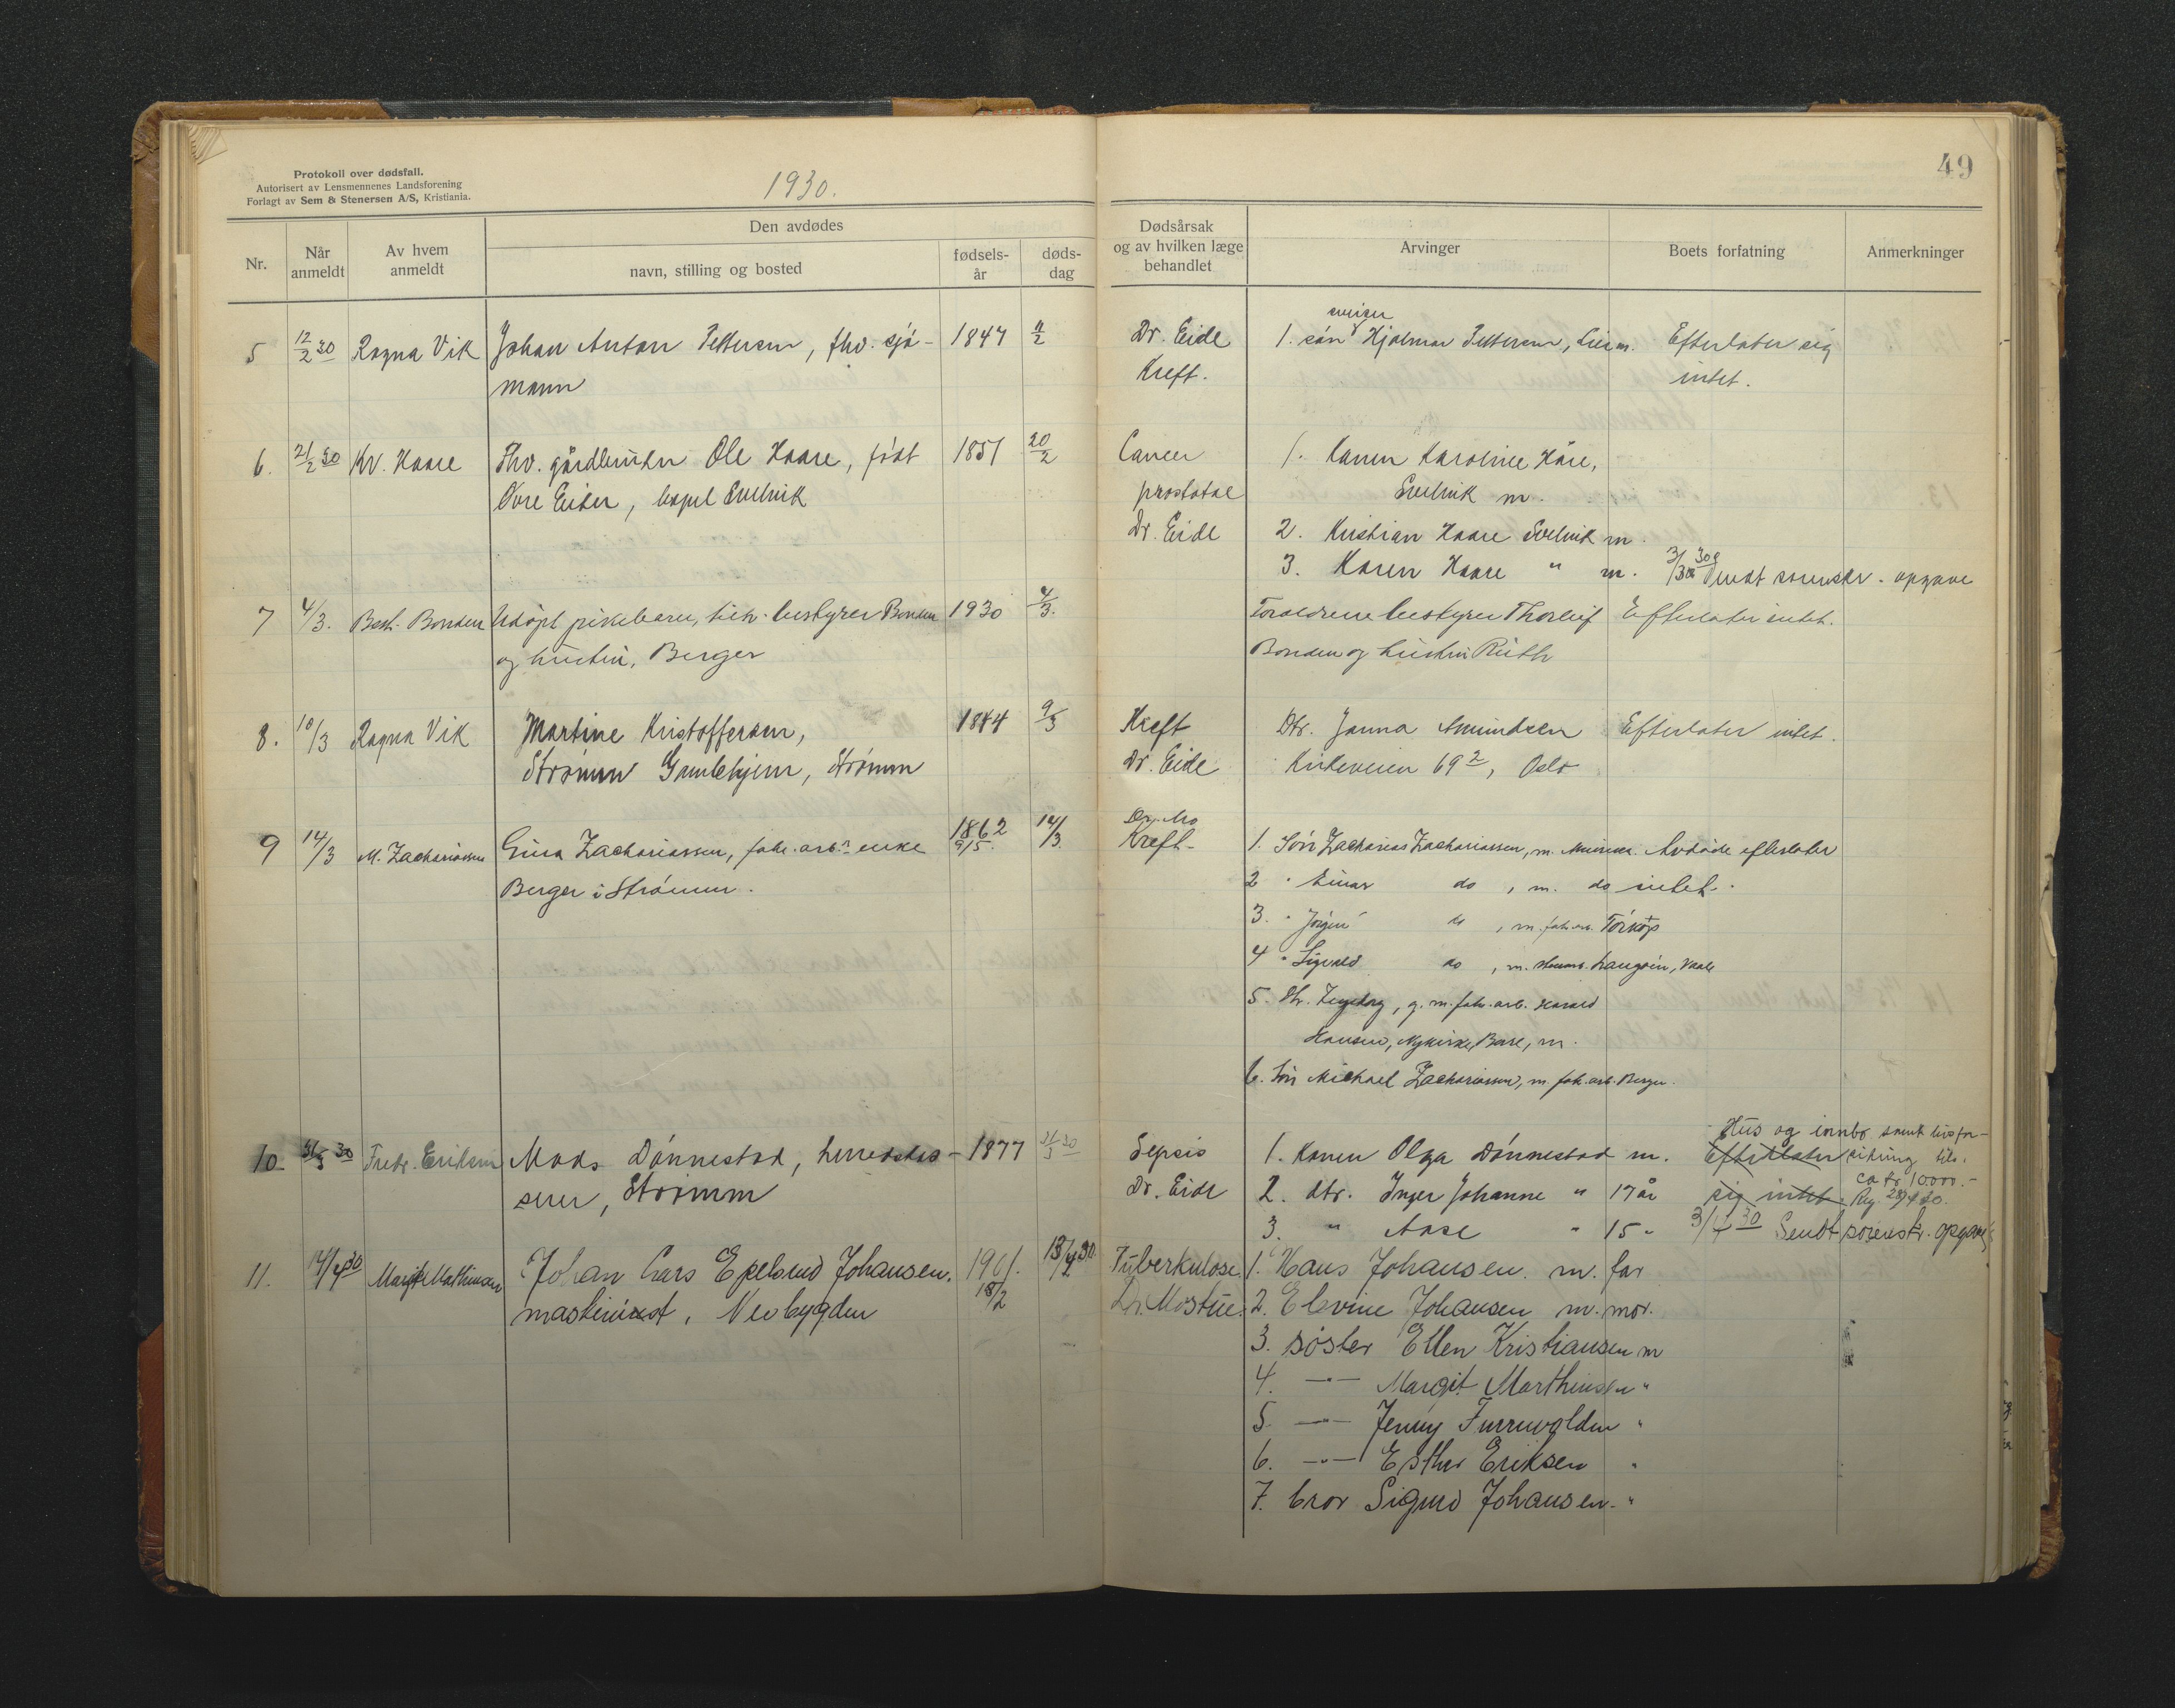 Protokoll over dødsfall.
Autorisert av Lensmennenes Landsforening
Forlagt av Sem & Stenersen A/S, Kristiania.
1930.
49
Nr.
Når anmeldt
Av hvem anmeldt
Den avdødes
navn, stilling og bosted
fødsels-år
døds-dag
Dødsårsak og av hvilken læge behandlet
Arvinger
Boets forfatning
Anmerkninger
5 12/2 30 Ragna Vik Johan Anton Pettersen, fhv. sjø- 1847 11/2 Dr. Eide 1. søn Hjalmar Pettersen, Lier m. Efterlater sig
mann Kreft. intet.
6. 21/2 30 Kr. Haare Fhv. gårdbruker Ole Haare, født 1851 20/2 Cancer 1. Konen Karoline Håre,
Øvre Eiker, bopel Svelvik prostatae Svelvik m.
Dr. Eide 2. Kristian Haare Svelvik m.
3. Karen Haare " m. Sendt sorenskr. opgave
7 4/3. Best. Bonden Udøpt pikebarn, tilh. bestyrer Bonden 1930 4/3. Foreldrene bestyrer Thorleif Efterlater intet.
og hustru, Berger Bonden og hustru Ruth
8. 10/3 Ragna Vik Martine Kristoffersen, 1844 9/3 Kreft Dtr. Janna Amundsen Efterlater intet.
Strømm Gamlehjem, Strømm Dr. Eide Kirkeveien 69 2, Oslo
9 14/3 M. Zachariassen Gina Zachariassen, fabr. arb. enke 1862 9/5. 14/3. Dr. Mo Kreft. 1. Søn Zacharias Zachariassen, m. Avdøde efterlater
Berger i Strømm. 2 " Einar do, m. do intet.
3. " Jørgen do, m. fabr. arb.
4 " Sigvald do, m. Langøen, Vaale
5. Dtr. , g. m. fabr. arb. Harald
Hansen, Nykirke, Borre, m.
6. Søn Michael Zachariassen, m. fabr. arb. Berger.
10. 31/3 30 Fredr. Eriksen Mads Dønnestad, herredskas- 1877 31/3 30 Sepsis 1. Konen Olga Dønnestad m. Efterlater Hus og innbo samt livsfor-
serer, Strømm Dr. Eide 2. dtr. Inger Johanne " 17 år sig intet sikring tils. ca kr. 10000.-
3. " Aase " 15 " 3/4 30 Sendt sorenskr. opgave
11. 14/4 30 Margit Marthinsen Johan Lars Epelund Johansen. 1901. 13/4 30. Tuberkulose. 1. Hans Johansen. m. far
maskinist, Nesbygden 18/2 Dr. Mostue. 2. Elvine Johansen m. mor.
3. søster Ellen Kristiansen m
4. —"— Margit Marthinsen "
5 —"— Jenny Furuvolden "
6. —"— Esther Eriksen "
7. bror Sigurd Johansen. "